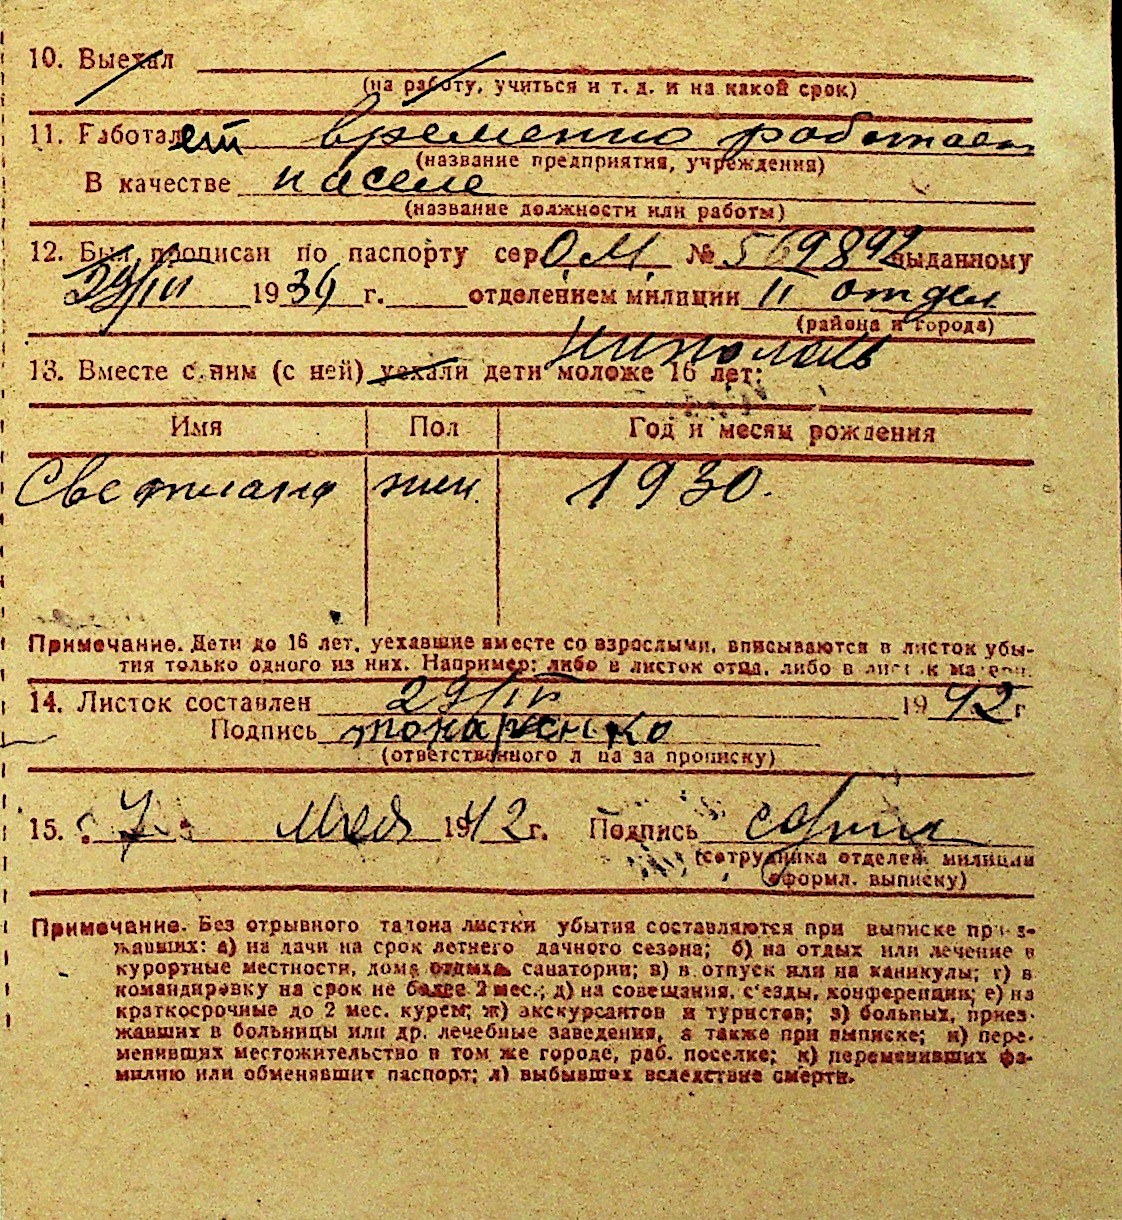 10. Выехал
(на работу, учиться и т. д. и на какой срок)
11. Работал ет временно работает
(название предприятия, учреждения)
В качестве
(название должности или работы)
12. Был прописан по паспорту сер О.М. № 569892 выданному
29/III 1939 г. отделением милиции II отдел
(района и города)
13. Вместе с ним (с ней) уехали дети моложе 16 лет:
Имя Пол Год и месяц рождения
Светлана жен. 1930.
Примечание. Дети до 16 лет, уехавшие вместе со взрослыми, вписываются в листок убы-
тия только одного из них. Например: либо в листок отца, либо в листок матери.
14. Листок составлен 29/IV 1942 г
Подпись
(ответственного лица за прописку)
15. „7" мая 1942 г. Подпись
(сотрудника отделен. милиции
оформл. выписку)
Примечание. Без отрывного талона листки убытия составляются при выписке приез-
жавших: а) на дачи на срок летнего дачного сезона; б) на отдых или лечение в
курортные местности, дома отдыха, санатории; в) в отпуск или на каникулы; г) в
командировку на срок не более 2 мес.; д) на совещания, с'езды, конференции; е) на
краткосрочные до 2 мес. курсы; ж) экскурсантов и туристов; з) больных, приез-
жавших в больницы или др. лечебные заведения, а также при выписке; и) пере-
менивших местожительство в том же городе, раб. поселке; к) переменивших фа-
милию или обменявших паспорт; л) выбывших вследствие смерти.